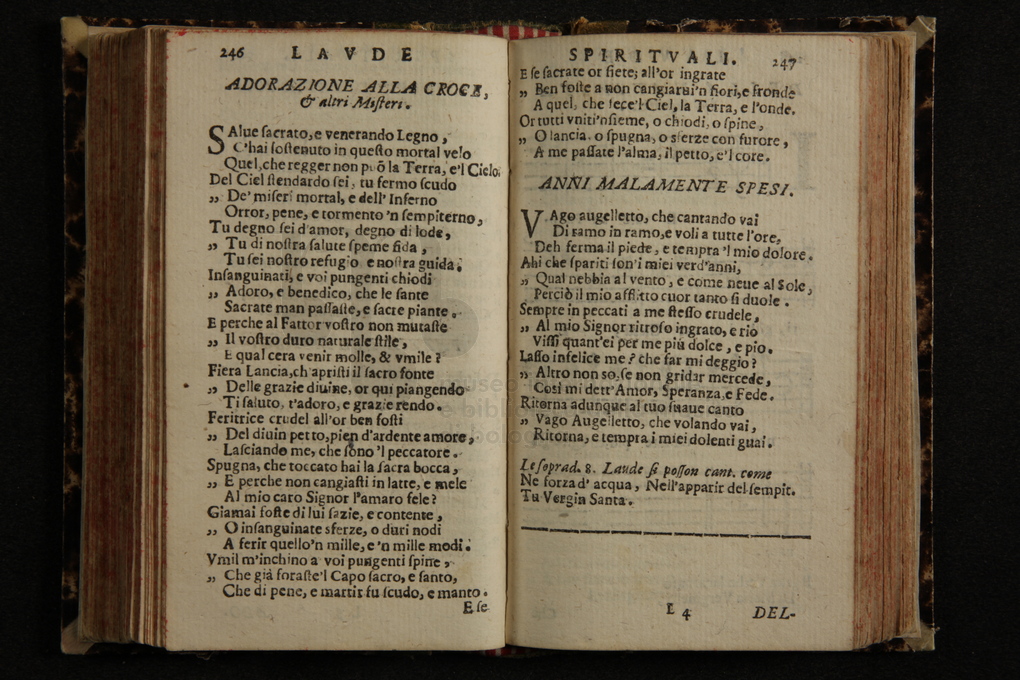 246 LAVDE
ADORAZIONE ALLA CROCE,
& altri Misteri.
SAlue sacrato, e venerando Legno,
C'hai sostenuto in questo mortal velo
Quel, che regger non può la Terra, e'l Cielo.
Del Ciel stendardo sei, tu fermo scudo
„ De' miseri mortal, e dell' Inferno
Orror, pene, e tormento 'n sempiterno,
Tu degno sei d'amor, degno di lode,
„ Tu di nostra salute speme fida,
Tu sei nostro refugio e nostra guida.
Insanguinati, e voi pungenti chiodi
„ Adoro, e benedico, che le sante
Sacrate man passaste, e sacre piante.
E perche al Fattor vostro non mutaste
„ Il vostro duro naturale stile,
E qual cera venir molle, & vmile?
Fiera Lancia, ch'apristi il sacro fonte
„ Delle grazie diuine, or qui piangendo
Ti saluto, t'adoro, e grazie rendo.
Feritrice crudel all'or ben fosti
„ Del diuin petto, pien d'ardente amore,
Lasciando me, che sono 'l peccatore.
Spugna, che toccato hai la sacra bocca,
„ E perche non cangiasti in latte, e mele
Al mio caro Signor l'amaro fele?
Giamai foste di lui sazie, e contente,
„ O insanguinate sferze, o duri nodi
A ferir quello'n mille, e'n mille modi.
Vmil m'inchino a voi pungenti spine,
„ Che già foraste'l Capo sacro, e santo,
Che di pene, e martir fu scudo, e manto.
E se
SPIRITVALI. 247
E se sacrate or siete; all'or ingrate
„ Ben foste a non cangiarui'n fiori, e fronde
A quel, che fece'l Ciel, la Terra, e l'onde.
Or tutti vniti'nsieme, o chiodi, o spine,
„ O lancia, o spugna, o sferze con furore,
A me passate l'alma, il petto, e'l core.
ANNI MALAMENTE SPESI.
VAgo augelletto, che cantando vai
Di ramo in ramo, e voli a tutte l'ore,
Deh ferma il piede, e tempra 'l mio dolore.
Ahi che spariti son'i miei verd'anni,
„ Qual nebbia al vento, e come neue al Sole,
Perciò il mio afflitto cuor tanto si duole.
Sempre in peccati a me stesso crudele,
„ Al mio Signor ritroso ingrato, e rio
Vissi quant'ei per me più dolce, e pio.
Lasso infelice me? che far mi deggio?
„ Altro non so, se non gridar mercede,
Così mi dett'Amor, Speranza, e Fede.
Ritorna adunque al tuo suaue canto
„ Vago Augelletto, che volando vai,
Ritorna, e tempra i miei dolenti guai.
Le soprad. 8. Laude si posson cant. come
Ne forza d' acqua, Nell'apparir del sempit.
Tu Vergin Santa.
E 4 DEL-